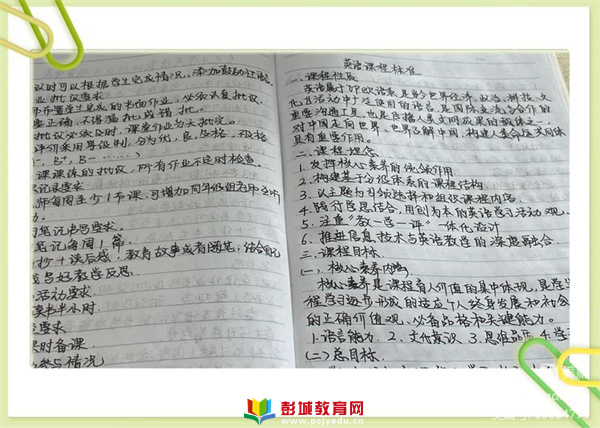 议时可以根据学生完成情况，添加鼓励性语言。
业批改要求
布置学生完成的书面作业，必须认真批改，
要正确，不得漏批或错批。
批改必须及时，课堂作业为天批改。
评价采用等级制，分为优，良，及格，
B+，B-……）
课课练的批改，所有作业不定时检查。
记录要求
师每周至少1节课，可增加同年级组
笔记书写要求
笔记每周1篇.
抄+读后感：教育故事或有随笔，结合自己
教学反思.
活动要求.
读书半小时.
要求
时备课
情况
英语课程标准
一、课程性质
英语属于印欧语系，是当今世界经济、政治、科技、文
化等活动中广泛使用的语言，是国际交流与合作的
重要沟通工具，也是传播人类文明成果的载体之一，
对中国走向世界、世界了解中国、构建人类命运共同体
具有重要作用。
二、课程理念
1. 发挥核心素养的统领作用
2. 构建基于分级体系的课程结构
3. 以主题为引领选择和组织课程内容.
4. 践行学思结合，用创为本的英语学习活动观.
5. 注重“教—学—评”一体化设计
6. 推进信息技术与英语教学的深度融合
三、课程目标.
（一）核心素养内涵
核心素养是课程育人价值的集中体现，是学生
程学习逐步形成的适应个人终身发展和社会
的正确价值观、必备品格和关键能力。
1.语言能力. 2. 文化意识 3. 思维品质 4. 学
（二）总目标.
彭城教育网
www.pcjyedu.cn